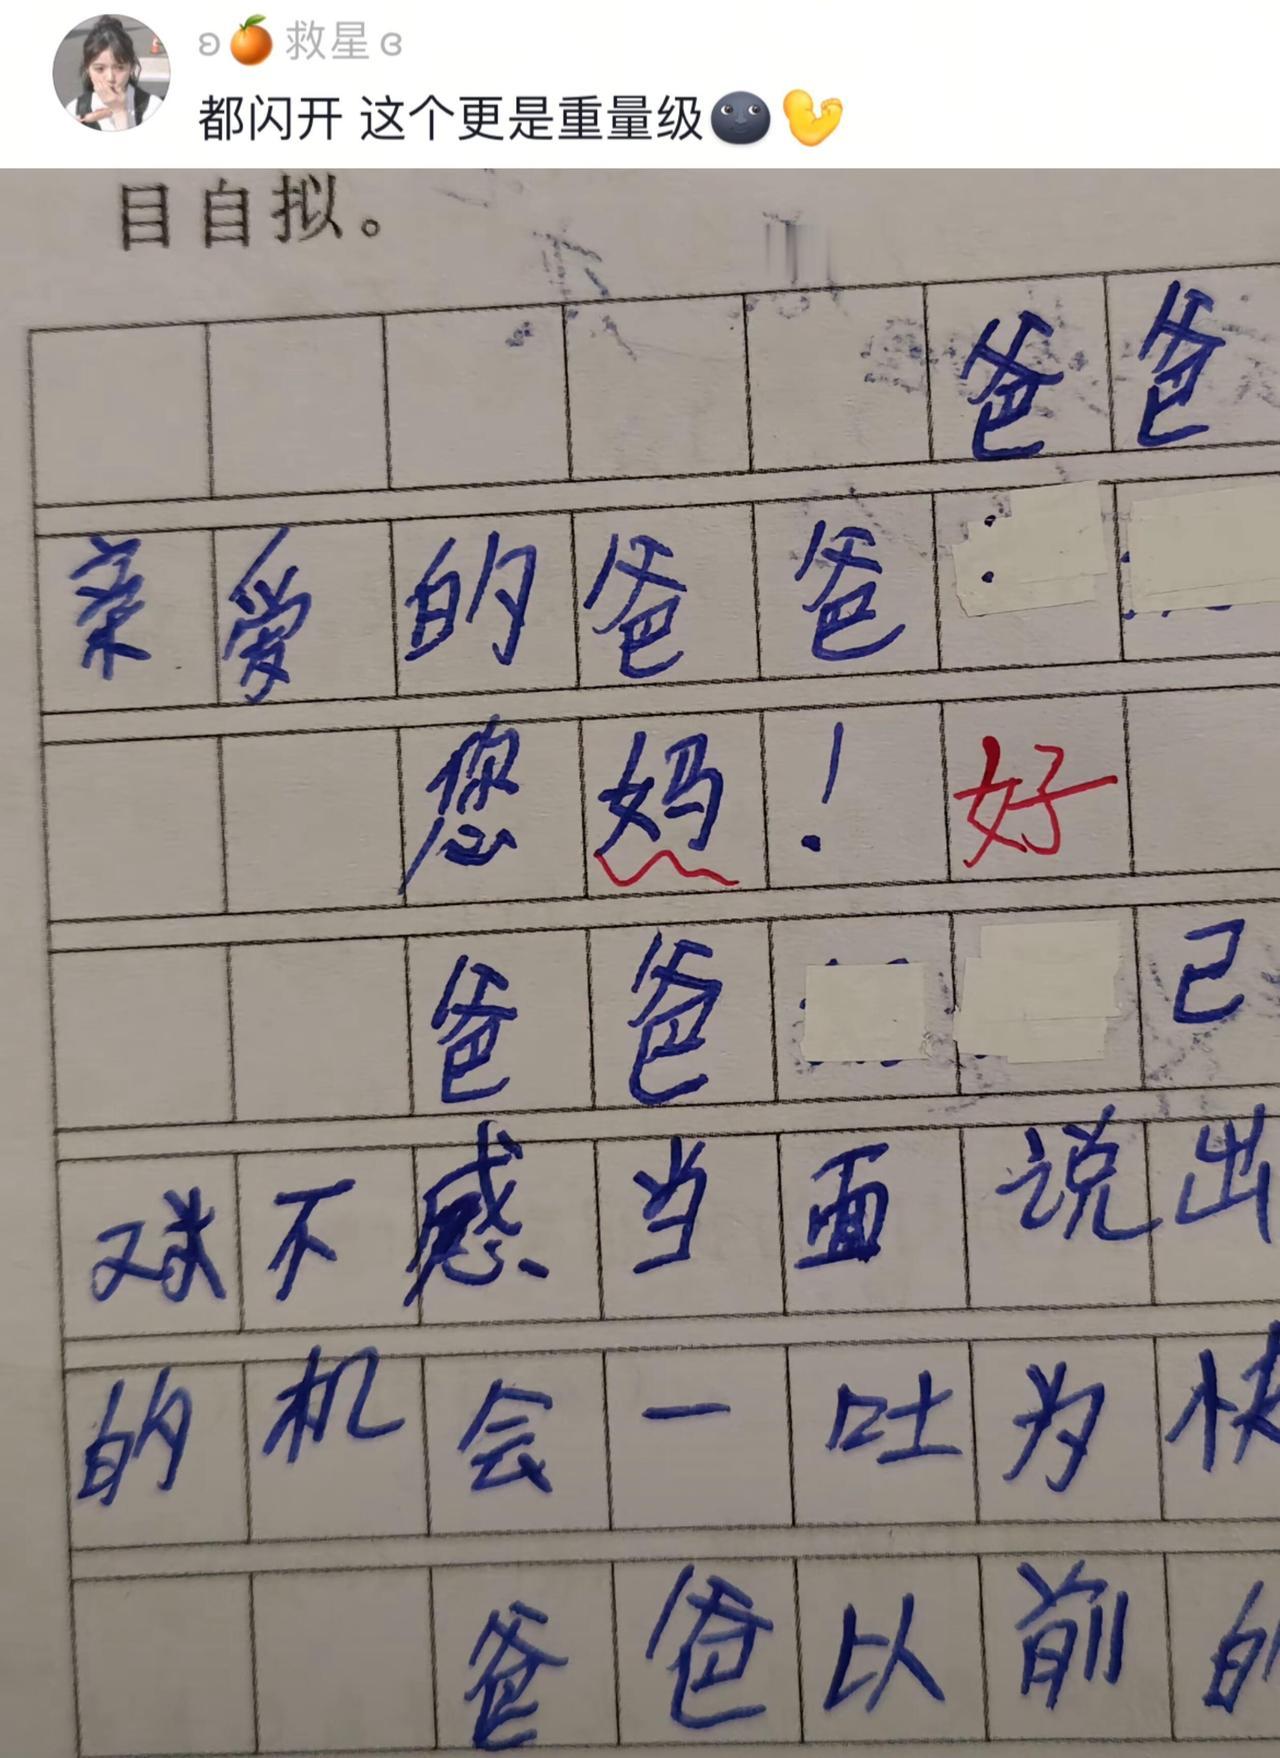 ʚ🍊救星ɞ
都闪开 这个更是重量级🌚💪
目自拟。
爸爸
亲爱的爸爸
您妈！好
爸爸 己
对不感当面说出
的机会一吐为快
爸爸以前的